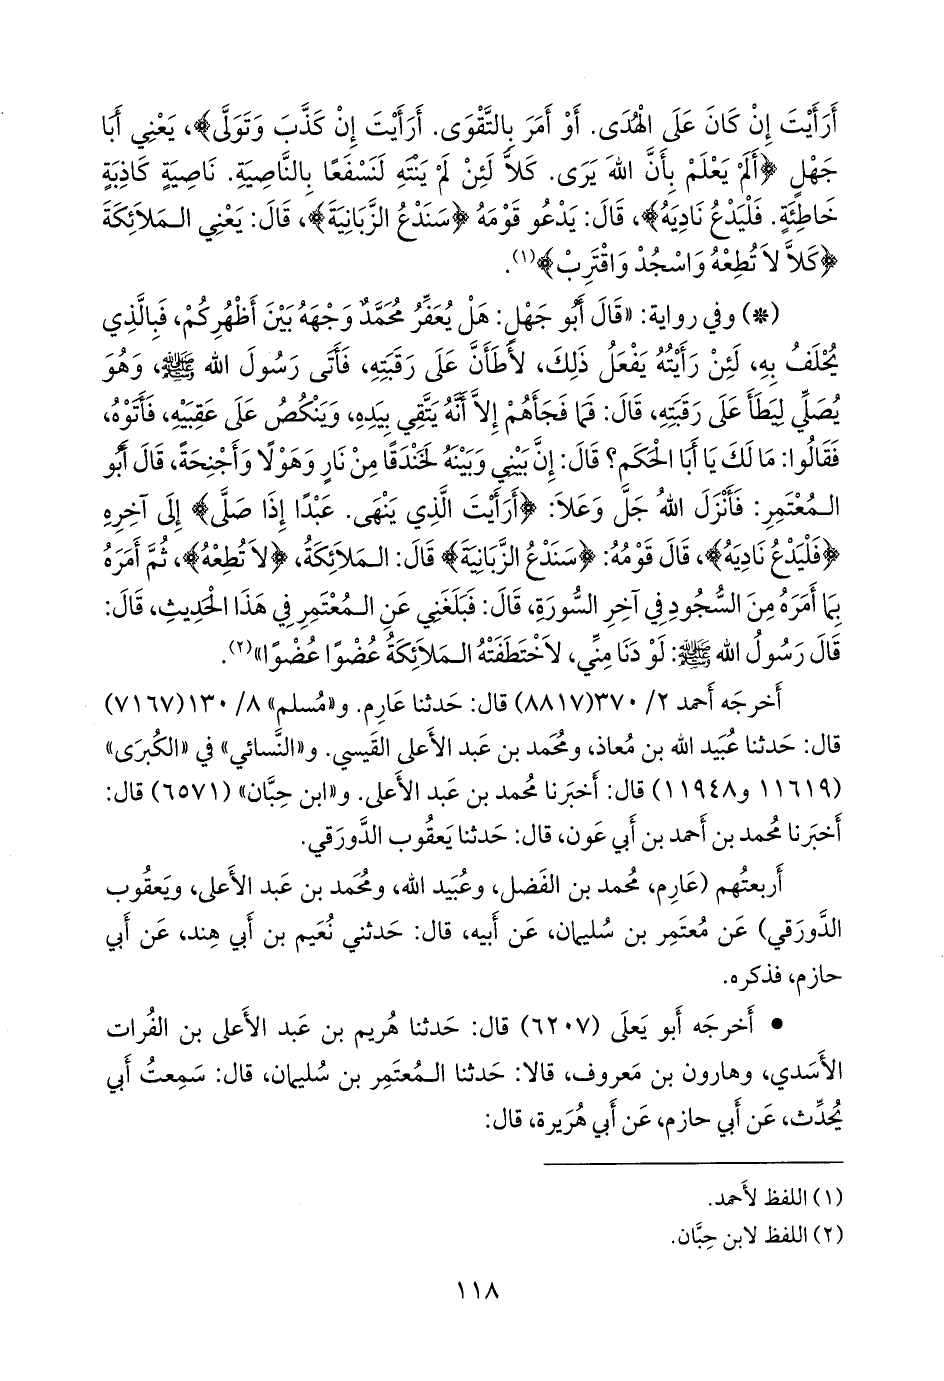 أَرَأَيْتَ إِنْ كَانَ عَلَى الْهُدَى. أَوْ أَمَرَ بِالتَّقْوَى. أَرَأَيْتَ إِنْ كَذَّبَ وَتَوَلَّى﴾، يَعْنِي أَبَا
جَهْلٍ ﴿أَلَمْ يَعْلَمْ بِأَنَّ اللهَ يَرَى. كَلاَّ لَئِنْ لَمْ يَنْتَهِ لَنَسْفَعًا بِالنَّاصِيَةِ. نَاصِيَةٍ كَاذِبَةٍ
خَاطِئَةٍ. فَلْيَدْعُ نَادِيَهُ﴾، قَالَ: يَدْعُو قَوْمَهُ ﴿سَنَدْعُ الزَّبَانِيَةَ﴾، قَالَ: يَعْنِي الـمَلاَئِكَةَ
﴿كَلاَّ لاَ تُطِعْهُ وَاسْجُدْ وَاقْتَرِبْ﴾(١).
(*) وفي رواية: «قَالَ أَبُو جَهْلٍ: هَلْ يُعَفِّرُ مُحَمَّدٌ وَجْهَهُ بَيْنَ أَظْهُرِكُمْ، فَبِالَّذِي
يُحْلَفُ بِهِ، لَئِنْ رَأَيْتُهُ يَفْعَلُ ذَلِكَ، لأَطَأَنَّ عَلَى رَقَبَتِهِ، فَأَتَى رَسُولَ الله ﷺ، وَهُوَ
يُصَلِّي لِيَطَأَ عَلَى رَقَبَتِهِ، قَالَ: فَمَا فَجَأَهُمْ إِلاَّ أَنَّهُ يَتَّقِي بِيَدِهِ، وَيَنْكُصُ عَلَى عَقِبَيْهِ، فَأَتَوْهُ،
فَقَالُوا: مَا لَكَ يَا أَبَا الْحَكَمِ؟ قَالَ: إِنَّ بَيْنِي وَبَيْنَهُ لَخَنْدَقًا مِنْ نَارٍ وَهَوْلًا وَأَجْنِحَةً، قَالَ أَبُو
الـمُعْتَمِرِ: فَأَنْزَلَ اللهُ جَلَّ وَعَلاَ: ﴿أَرَأَيْتَ الَّذِي يَنْهَى. عَبْدًا إِذَا صَلَّى﴾ إِلَى آخِرِهِ
﴿فَلْيَدْعُ نَادِيَهُ﴾، قَالَ قَوْمُهُ: ﴿سَنَدْعُ الزَّبَانِيَةَ﴾ قَالَ: الـمَلاَئِكَةُ، ﴿لاَ تُطِعْهُ﴾، ثُمَّ أَمَرَهُ
بِمَا أَمَرَهُ مِنَ السُّجُودِ فِي آخِرِ السُّورَةِ، قَالَ: فَبَلَغَنِي عَنِ الـمُعْتَمِرِ فِي هَذَا الْحَدِيثِ، قَالَ:
قَالَ رَسُولُ الله ﷺ: لَوْ دَنَا مِنِّي، لاَخْتَطَفَتْهُ الـمَلاَئِكَةُ عُضْوًا عُضْوًا»(٢).
أَخرجَه أَحمد ٢/ ٣٧٠(٨٨١٧) قال: حَدثنا عَارِم. و«مُسلم» ٨/ ١٣٠(٧١٦٧)
قال: حَدثنا عُبَيد الله بن مُعاذ، ومُحمد بن عَبد الأَعلى القَيسي. و«النَّسائي» في «الكُبرَى»
(١١٦١٩ و١١٩٤٨) قال: أَخبَرنا مُحمد بن عَبد الأَعلى. و«ابن حِبَّان» (٦٥٧١) قال:
أَخبَرنا مُحمد بن أَحمد بن أَبي عَون، قال: حَدثنا يَعقُوب الدَّورَقي.
أَربعتُهم (عَارِم، مُحمد بن الفَضل، وعُبَيد الله، ومُحمد بن عَبد الأَعلى، ويَعقُوب
الدَّورَقي) عَن مُعتَمِر بن سُليمان، عَن أَبيه، قال: حَدثني نُعَيم بن أَبي هِند، عَن أَبي
حازم، فذكره.
• أَخرجَه أَبو يَعلَى (٦٢٠٧) قال: حَدثنا هُريم بن عَبد الأَعلى بن الفُرات
الأَسَدي، وهارون بن مَعروف، قالا: حَدثنا الـمُعتَمِر بن سُليمان، قال: سَمِعتُ أَبي
يُحَدِّث، عَن أَبي حازم، عَن أَبي هُرَيرة، قال:
(١) اللفظ لأَحمد.
(٢) اللفظ لابن حِبَّان.
١١٨